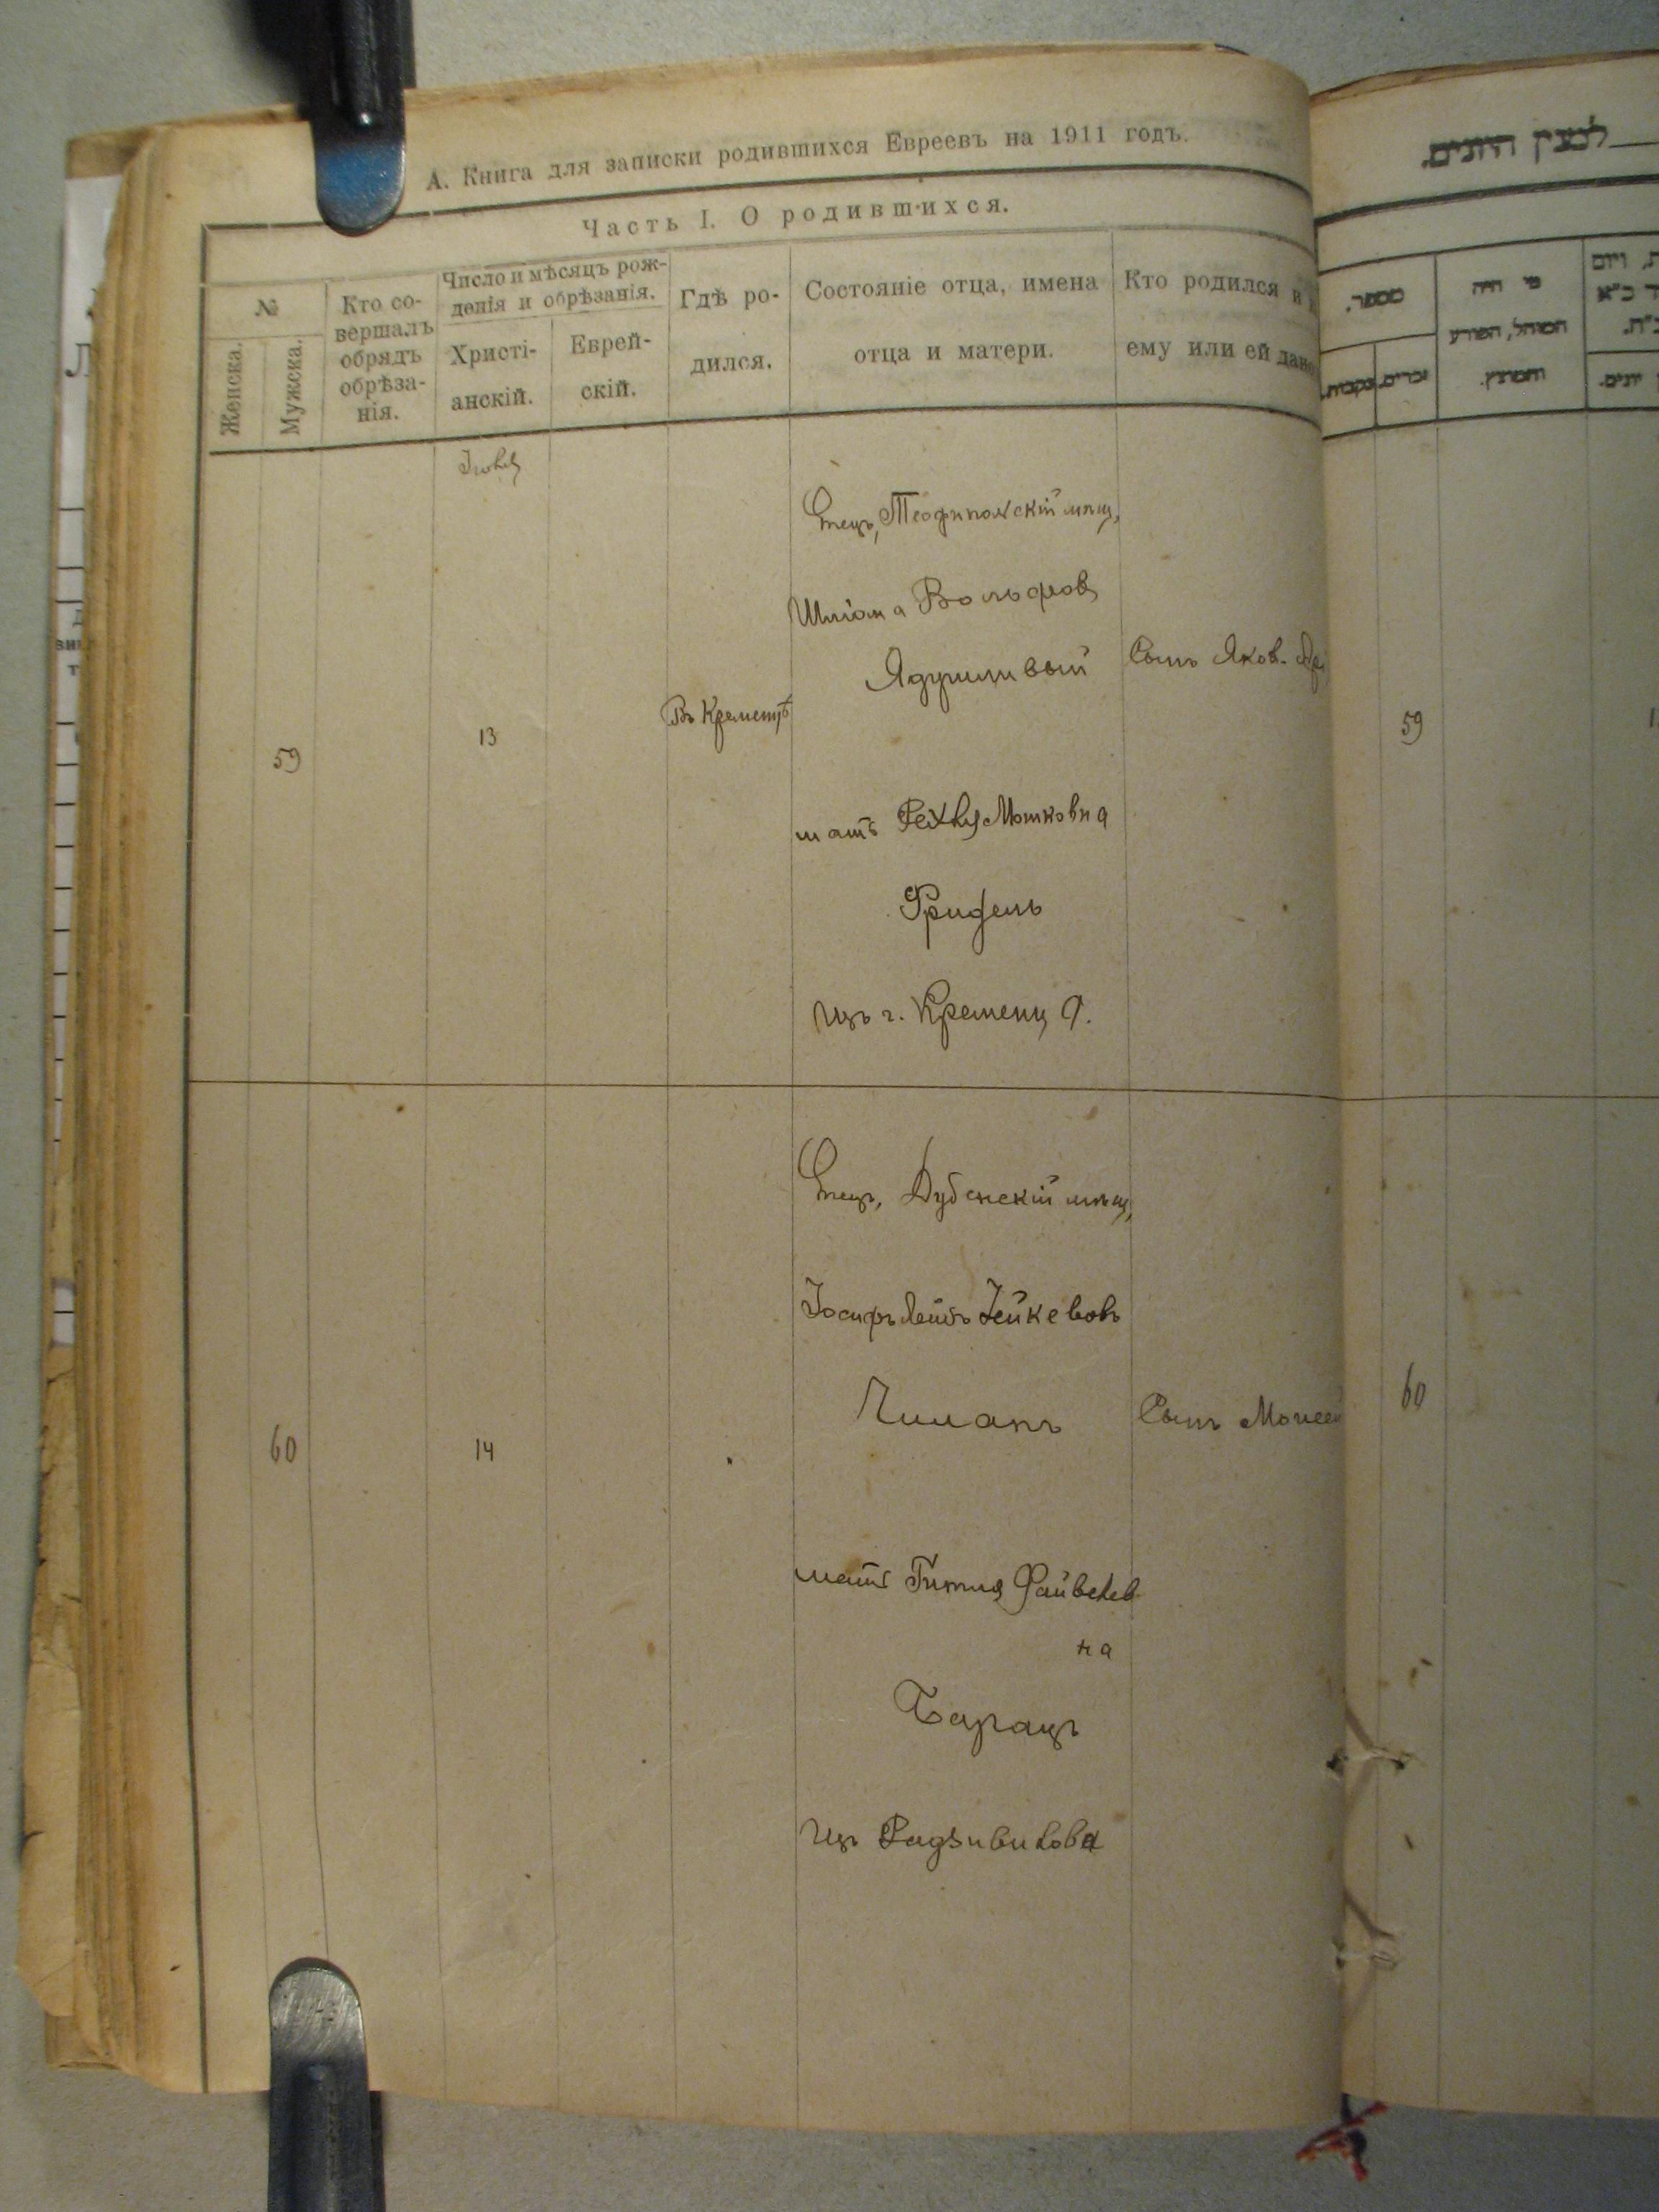 А. Книга для записки родившихся Евреевъ на 1911 годъ.
Часть I. О родившихся.
№
Женска.
Мужска.
Кто со-
вершалъ
обрядъ
обрѣза-
нія.
Число и мѣсяцъ рож-
денія и обрѣзанія.
Христі-
анскій.
Еврей-
скій.
Гдѣ ро-
дился.
Состояніе отца, имена
отца и матери.
Кто родился и
ему или ей дано
59
13
Въ Кременцѣ
Отецъ, Теофипольскій мѣщ,
Шліома Вольфов
Ядушливый
мать Рехля Мошковна
Фридель
изъ г. Кременца.
Сынъ Яков-
60
14
Отецъ, Дубенскій мѣщ,
Іосифъ Лейбъ
Чиланъ
мать Гитля Файвелев
на
Барацъ
Изъ Радзивилова
Сынъ Моисей
מספר.
זכרים.
נקבות.
מי היה
המוהל, הפורע
והמוצץ.
59
60